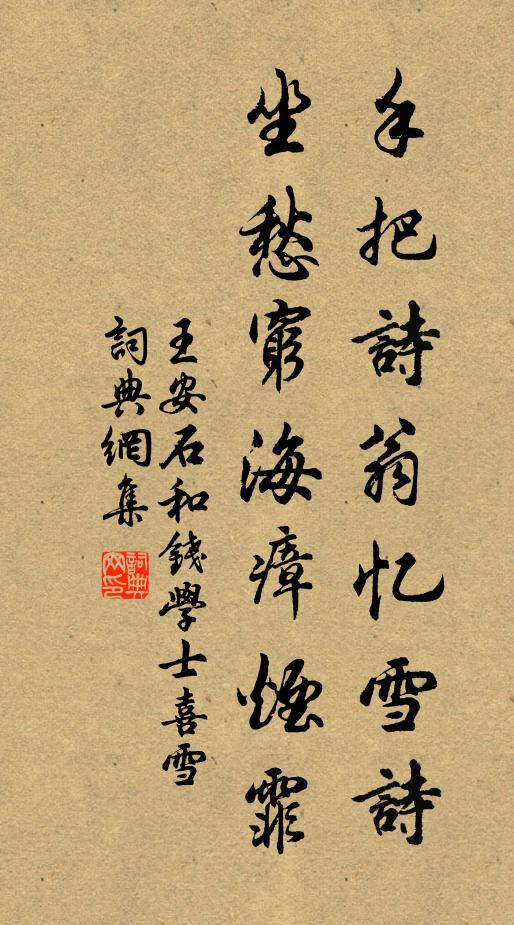 手把詩翁忆雪詩
坐愁窮海瘴煙霏
王安石和錢學士喜雪
詞典網集
詞典网印